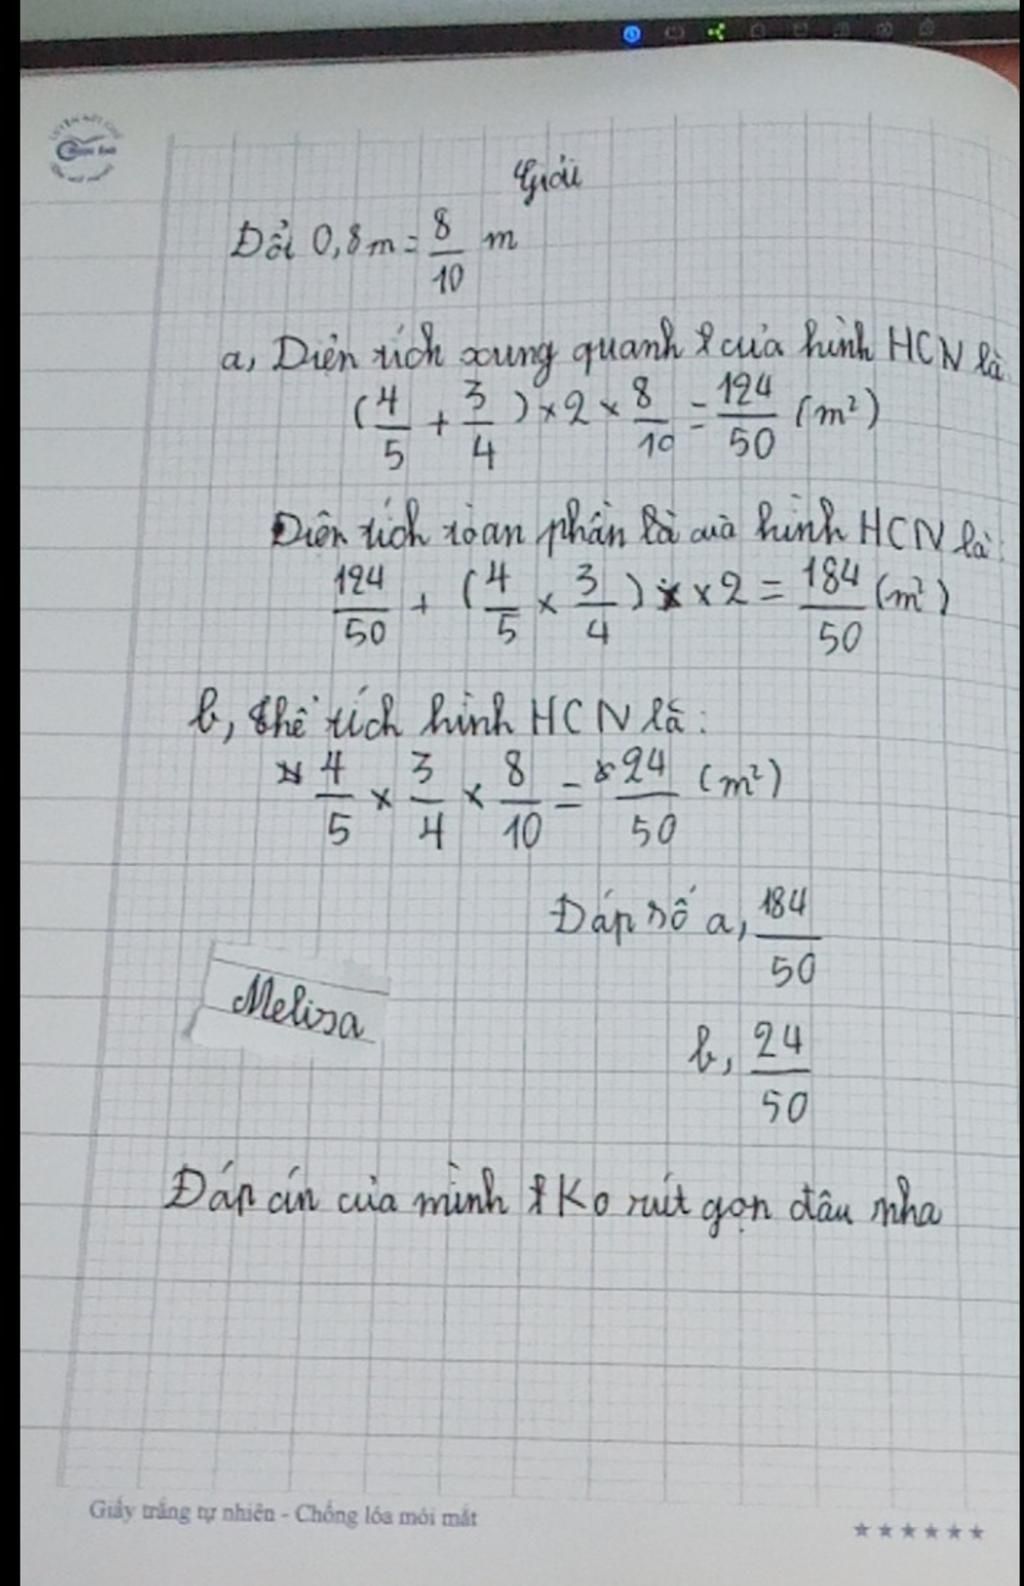 Giải
Đổi 0,8m = 8/10 m
a, Diện tích xung quanh của hình HCN là
(4/5 + 3/4) × 2 × 8/10 = 124/50 (m²)
Diện tích toàn phần là của hình HCN là:
124/50 + (4/5 × 3/4) × 2 = 184/50 (m²)
b, thể tích hình HCN là:
4/5 × 3/4 × 8/10 = 24/50 (m²)
Đáp số a, 184/50
Melisa
b, 24/50
Đáp án của mình Ko rút gọn đâu nha
Giấy trắng tự nhiên - Chống lóa mỏi mắt